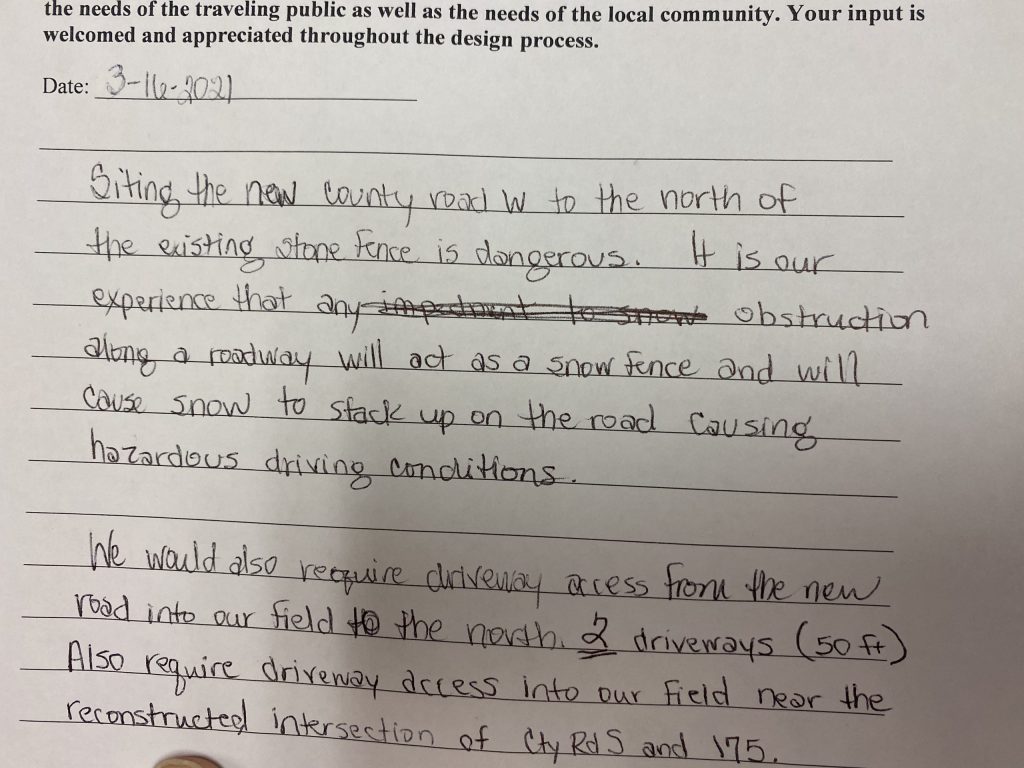 the needs of the traveling public as well as the needs of the local community. Your input is
welcomed and appreciated throughout the design process.
Date: 3-16-2021
Siting the new county road W to the north of
the existing stone fence is dangerous. It is our
experience that any impedment to snow obstruction
along a roadway will act as a snow fence and will
cause snow to stack up on the road causing
hazardous driving conditions.
We would also require driveway access from the new
road into our field to the north. 2 driveways (50 ft)
Also require driveway access into our field near the
reconstructed intersection of Cty Rd S and 175.